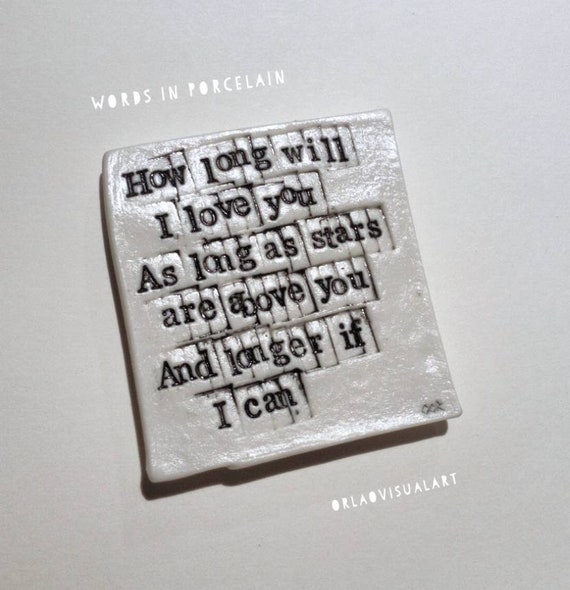 WORDS IN PORCELAIN
How long will
I love you
As long as stars
are above you
And longer if
I can.
ORLAOVISUALART